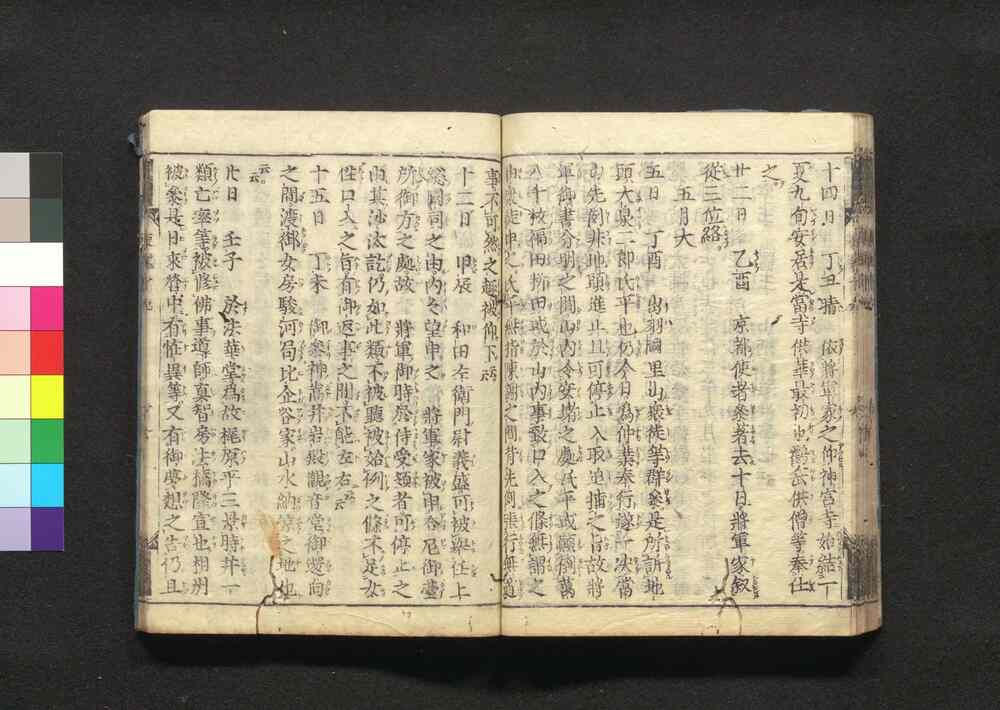 十四日 丁丑晴 依將軍家之仰神宮寺始結一
夏九旬安居是當寺供華最初也 供僧等奉仕
之
廿二日 乙酉 京都使者參著去十日將軍家叙
從三位給
五月大
五日 丁酉 出羽國里山衆徒等群參是所訴地
頭大泉二郎氏平也仍今日爲仲業奉行 決當
山先例非地頭進止且可停止入取追捕之旨故將
軍御書分明之間山内令安堵之處氏平或顛倒
八千枚福田 田或於山内事致口入之條無謂之
由衆徒申之氏平無指陳謝之間背先例張行無道
事不可然之趣被仰下云云
十二日 甲辰 和田左衛門尉義盛可被擧任上
總國司之由内々望申之 將軍家被申合尼御臺
所御方之處故 將軍御時於侍受領者可停止之
由其沙汰訖仍如此類不被聽被始例之條不足女
性口入之旨有御返事之間不能左右云云
十五日 丁未 御參神嵩并岩殿觀音堂御還向
之間渡御女房駿河局比企谷家山水納凉之地也
云云
廿日 壬子 於法華堂爲故梶原平三景時并一
類亡卒等被修佛事導師眞智房法橋隆宣也相州
被參是日來營中有恠異等又有御夢想之告仍且